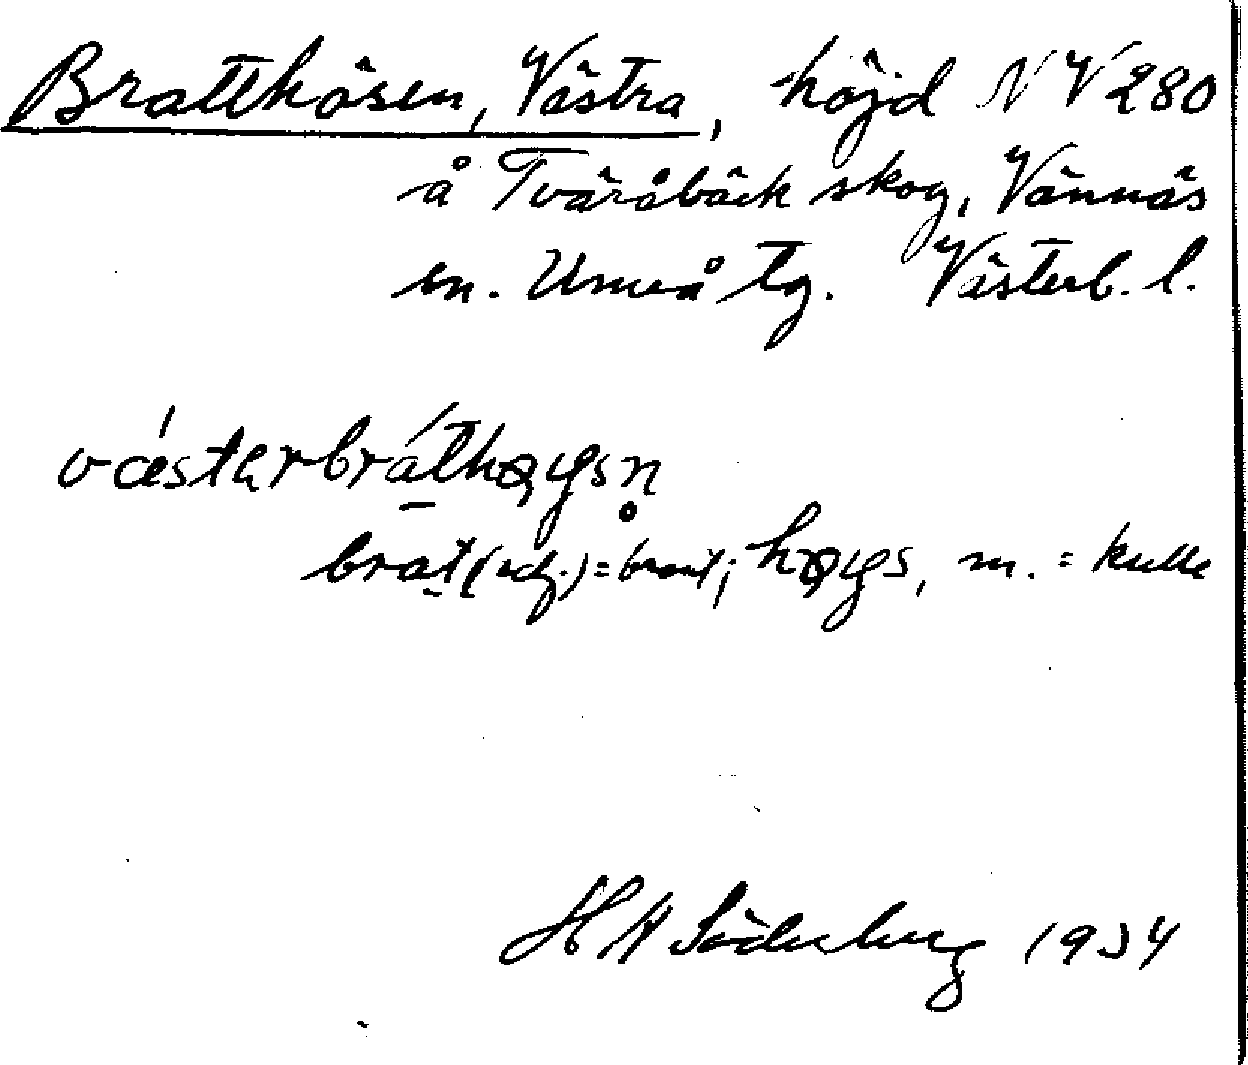 Bratthösen, Västra, höjd NV 280
å Tväråbäck skog, Vännäs
sn. Umeå tg. Västerb. l.
västərbráthøysn̥
brat (adj.) = brant; høys, m. = kulle
H A Söderberg 1934